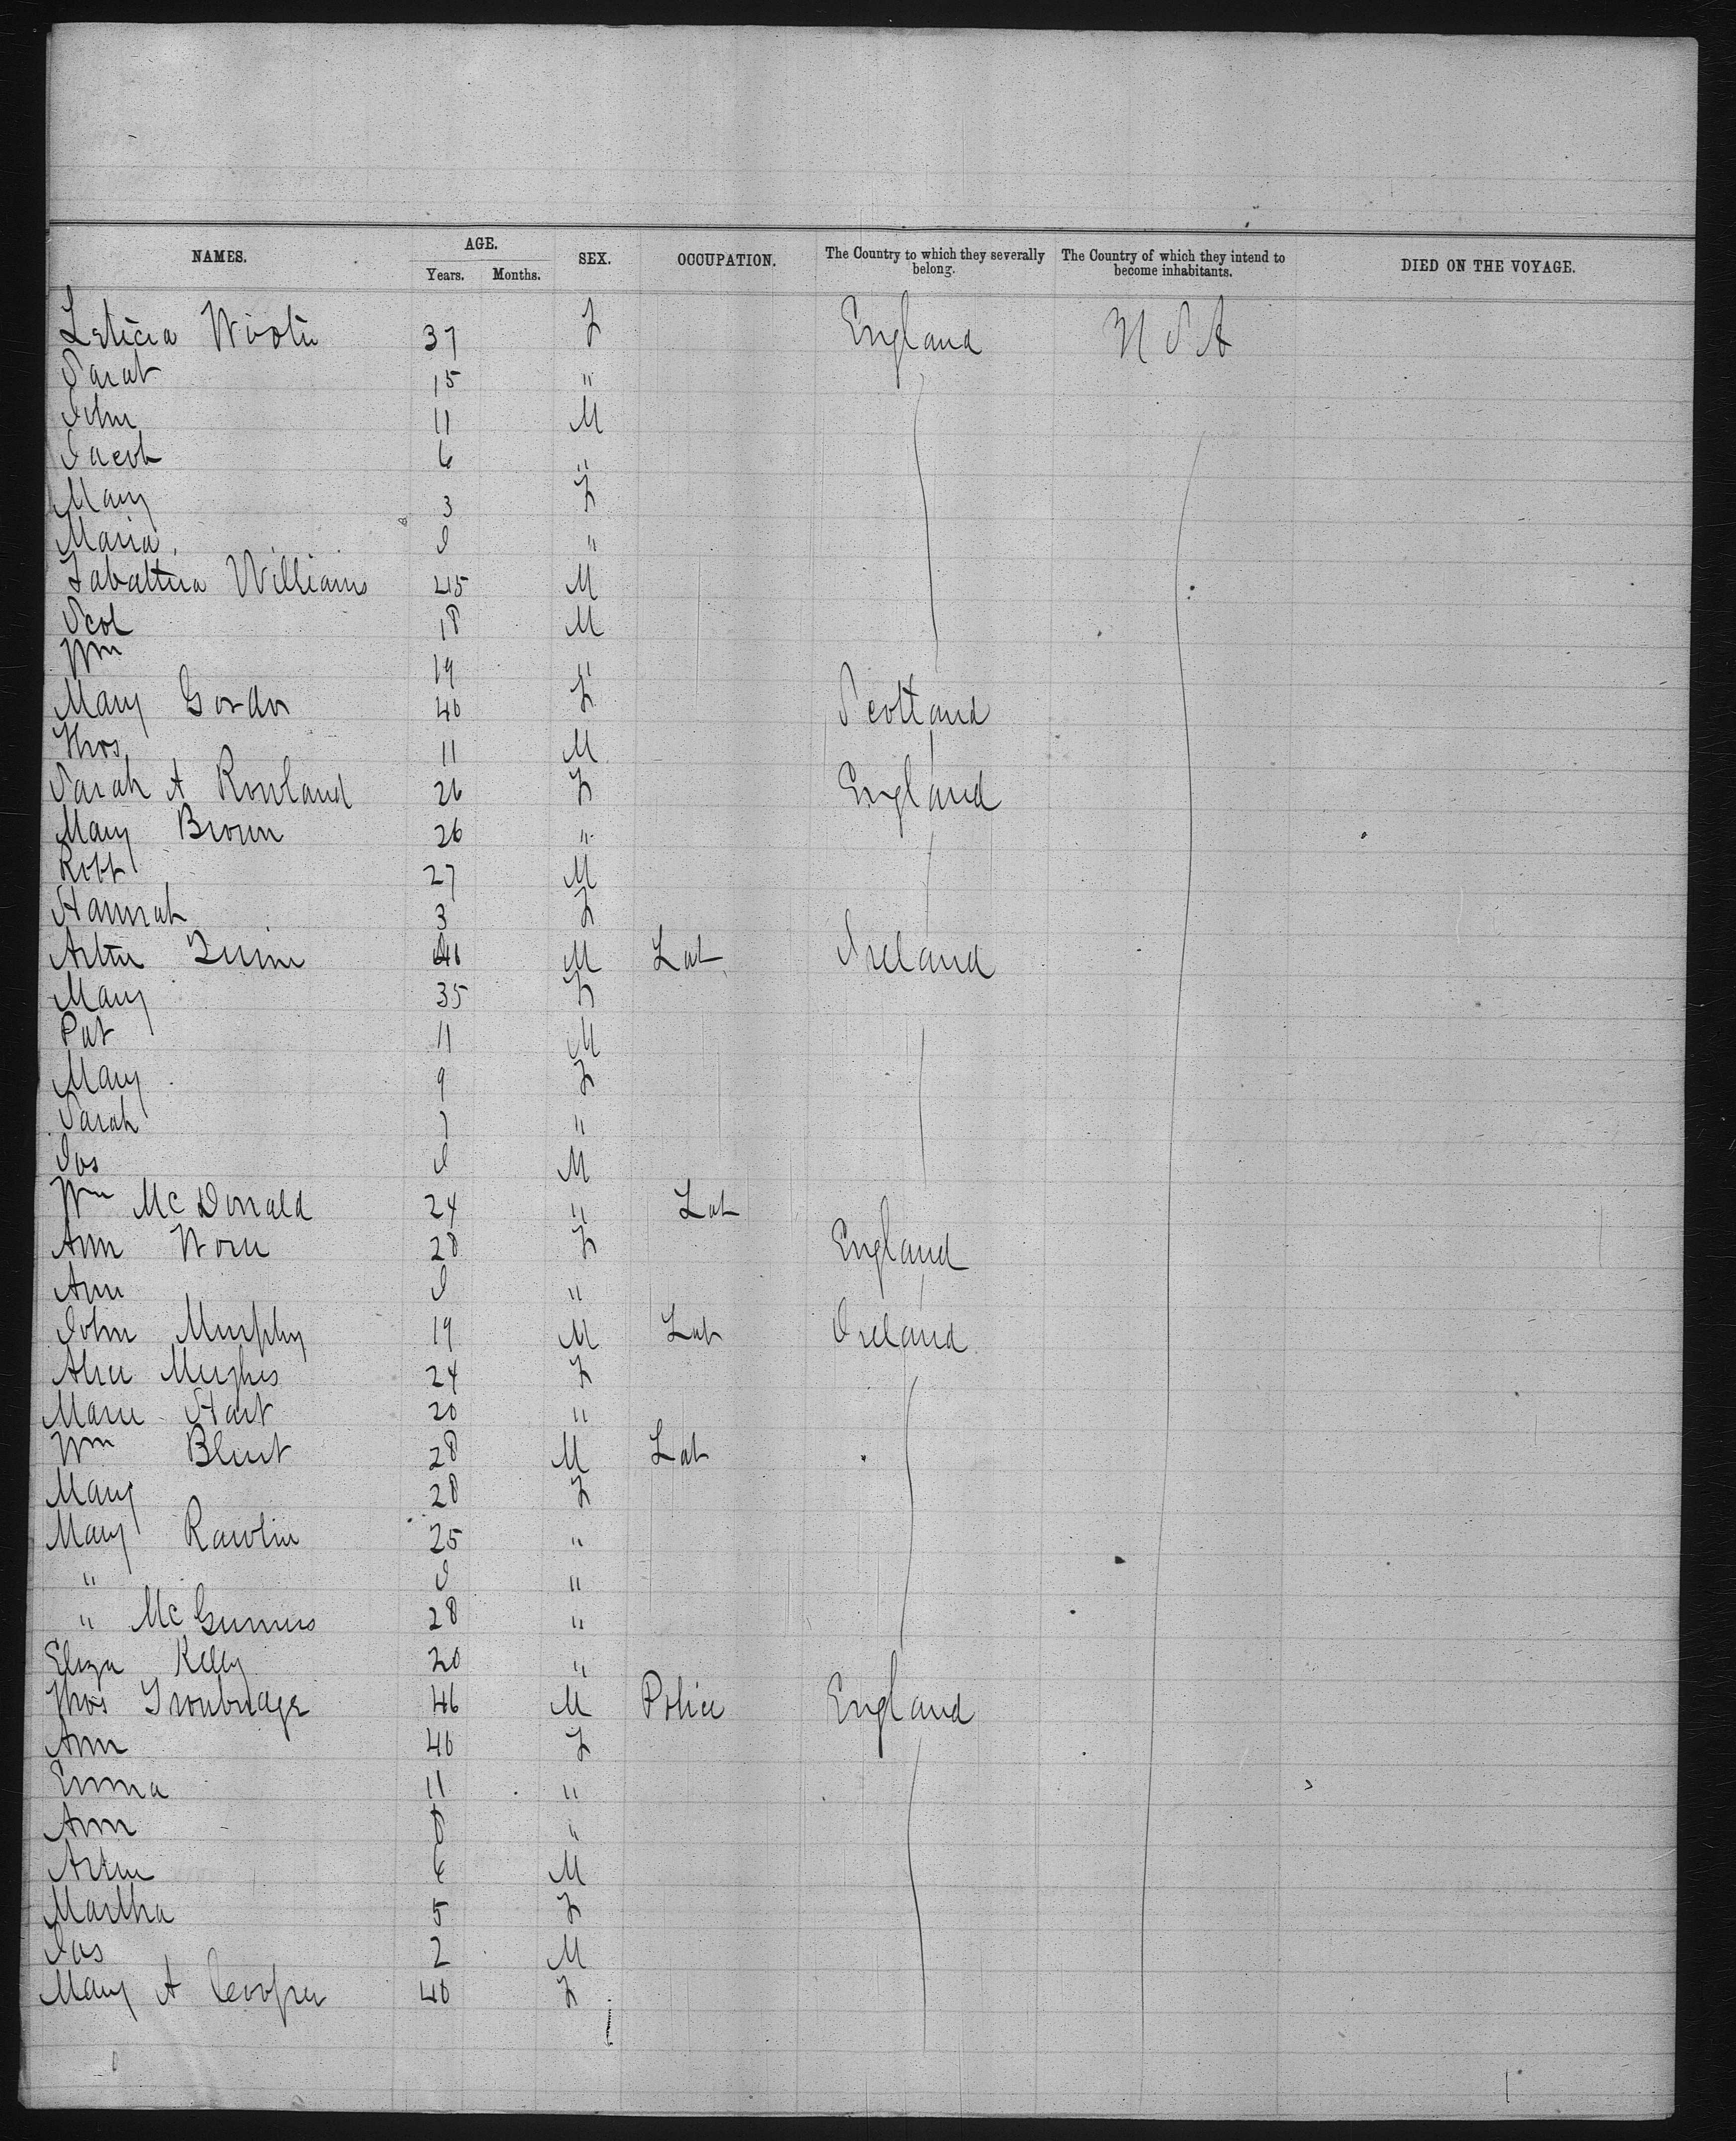 NAMES. AGE. Years. Months. SEX. OCCUPATION. The Country to which they severally belong. The Country of which they intend to become inhabitants. DIED ON THE VOYAGE.
Leticia 37 F England U S A
Sarah 15 "
John 11 M
Jacob 6 "
Mary 3 F
Maria I "
Williams 45 M
18 M
Wm 19 "
Mary Gordon 40 F Scotland
Thos 11 M
Sarah A Rowland 26 F England
Mary Brown 26 "
Robt 27 M
Hannah 3 F
Arthur Quinn M Lab Ireland
Mary 35 F
Pat 11 M
Mary 9 F
Sarah 7 "
Jos I M
Wm McDonald 24 " Lab
Ann 28 F England
Ann I "
John Murphy 19 M Lab Ireland
Alice Hughes 24 F
Marie Hart 20 "
Wm Blunt 28 M Lab
Mary 28 F
Mary Rawlin 25 "
" I "
" McGinnis 28 "
Eliza Kelly 20 "
Thos Trowbridge 46 M Police England
Ann 40 F
Emma 11 "
Ann 8 "
Arthur 6 M
Martha 5 F
Jas 2 M
Mary A Cooper 40 F